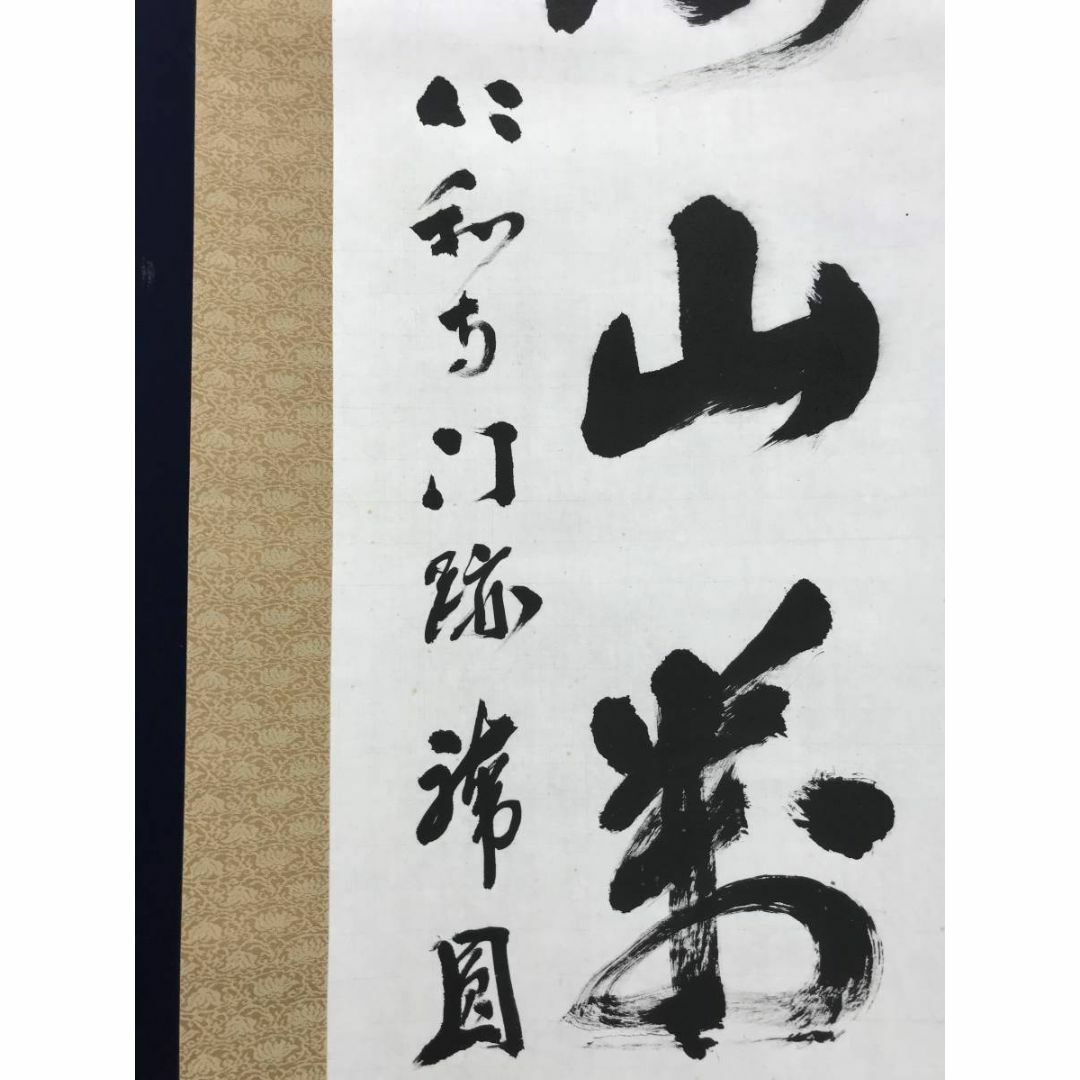 山萬
仁和寺門跡諦圓